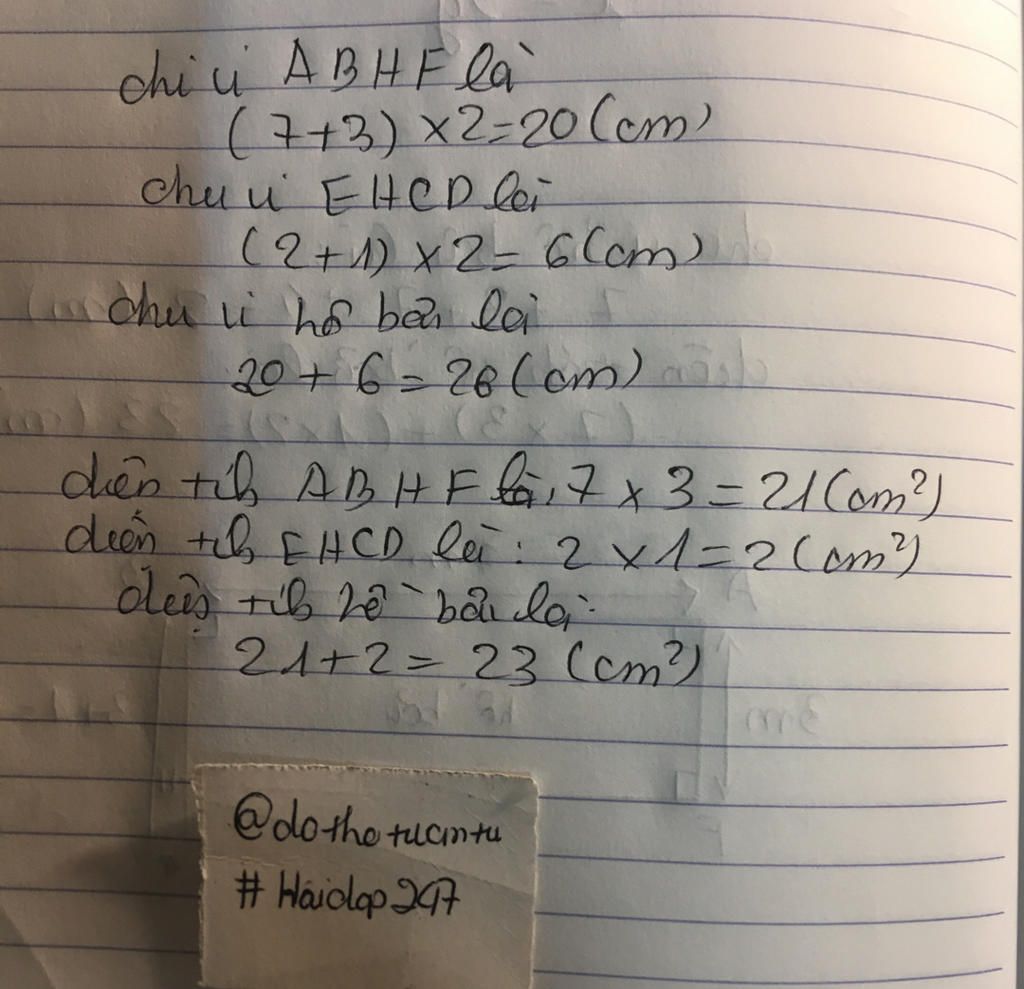 chi ui ABHF là
(7+3) × 2 = 20 (cm)
chu ui EHCD là
(2+1) × 2 = 6 (cm)
chu ui hồ bơi là
20 + 6 = 26 (cm)
diên tih ABHF là, 7 × 3 = 21 (cm²)
diên tih EHCD là: 2 × 1 = 2 (cm²)
diện tih hồ bơi là:
21 + 2 = 23 (cm²)
@dothetuantu
# Hoidap247